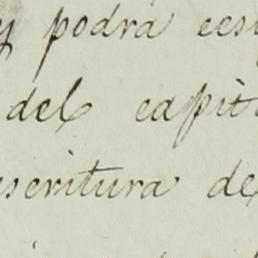 y podrá ces
del capit
escritura de